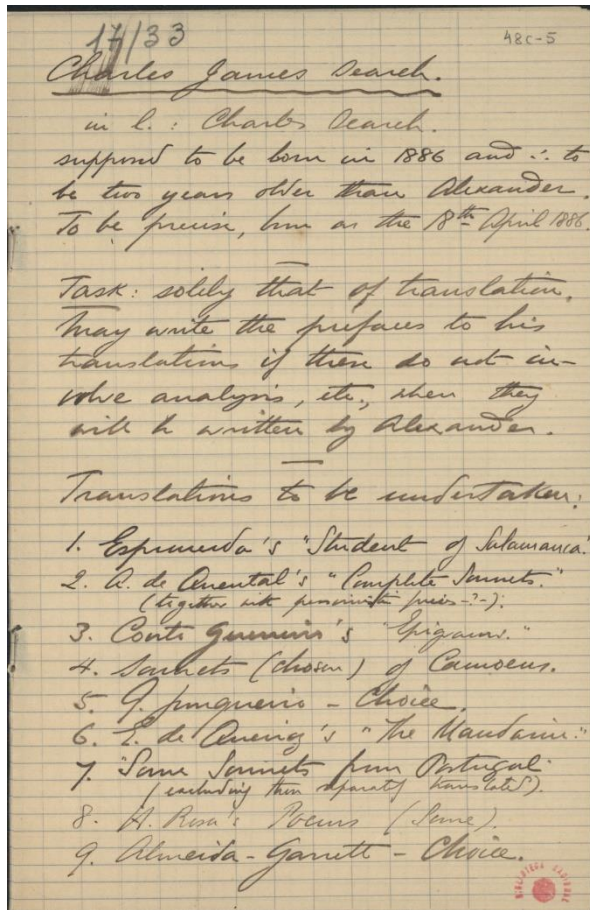 17/33
48C-5
Charles James Search.
in l.: Charles Search.
supposed to be born in 1886 and ∴ to
be two years older than Alexander.
To be precise, born on the 18th April 1886.
Task: solely that of translation.
May write the prefaces to his
translations if these do not in-
volve analysis, etc., when they
will be written by Alexander.
Translations to be undertaken:
1. Espronceda's "Student of Salamanca."
2. A. de Quental's "Complete Sonnets."
(together with pessimistic -?-).
3. Couto Guerreiro's "Epigrams."
4. Sonnets (chosen) of Camoens.
5. G. Junqueiro - Choice.
6. E. de Queiroz's "The Mandarin."
7. "Some Sonnets from Portugal"
(excluding those separately translated).
8. H. Rosa's Poems (Some).
9. Almeida-Garrett - Choice.
BIBLIOTECA NACIONAL